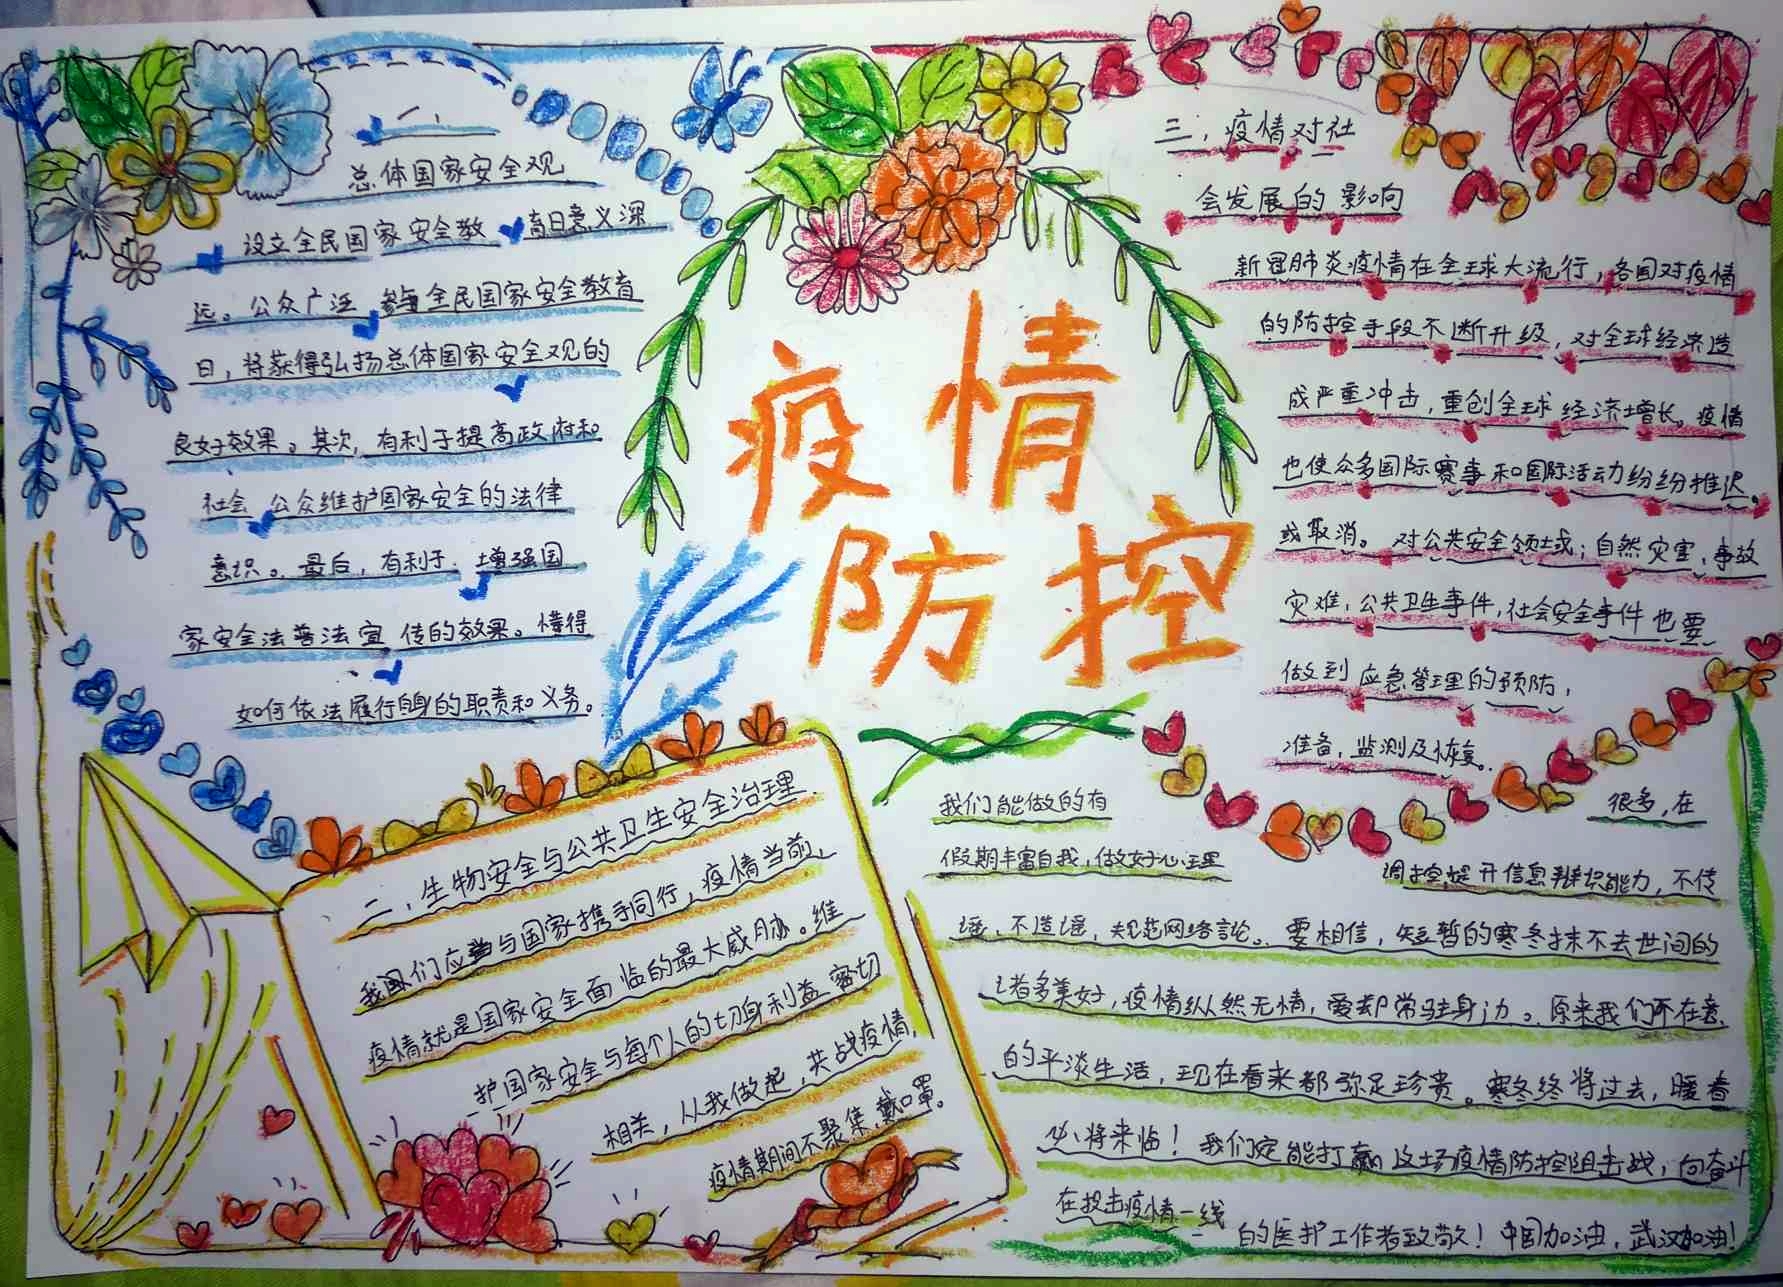 一、
总体国家安全观
设立全民国家安全教育日意义深
远。公众广泛参与全民国家安全教育
日，将获得弘扬总体国家安全观的
良好效果。其次，有利于提高政府和
社会公众维护国家安全的法律
意识。最后，有利于增强国
家安全法普法宣传的效果。懂得
如何依法履行自身的职责和义务。
疫情
防控
三，疫情对社
会发展的影响
新冠肺炎疫情在全球大流行，各国对疫情
的防控手段不断升级，对全球经济造
成严重冲击，重创全球经济增长。疫情
也使众多国际赛事和国际活动纷纷推迟
或取消。对公共安全领域；自然灾害，事故
灾难，公共卫生事件，社会安全事件也要
做到应急管理的预防，
准备，监测及恢复。
二，生物安全与公共卫生安全治理.
我们应当与国家携手同行，疫情当前，
疫情就是国家安全面临的最大威胁。维
护国家安全与每个人的切身利益密切
相关，从我做起，共战疫情，
疫情期间不聚集，戴口罩。
我们能做的有很多，在
假期丰富自我，做好心理调控，提升信息辩识能力，不传
谣，不造谣，规范网络言论。要相信，短暂的寒冬抹不去世间的
诸多美好，疫情纵然无情，爱却常驻身边。原来我们不在意
的平淡生活，现在看来都弥足珍贵。寒冬终将过去，暖春
必将来临！我们定能打赢这场疫情防控阻击战，向奋斗
在抗击疫情一线的医护工作者致敬！中国加油，武汉加油！